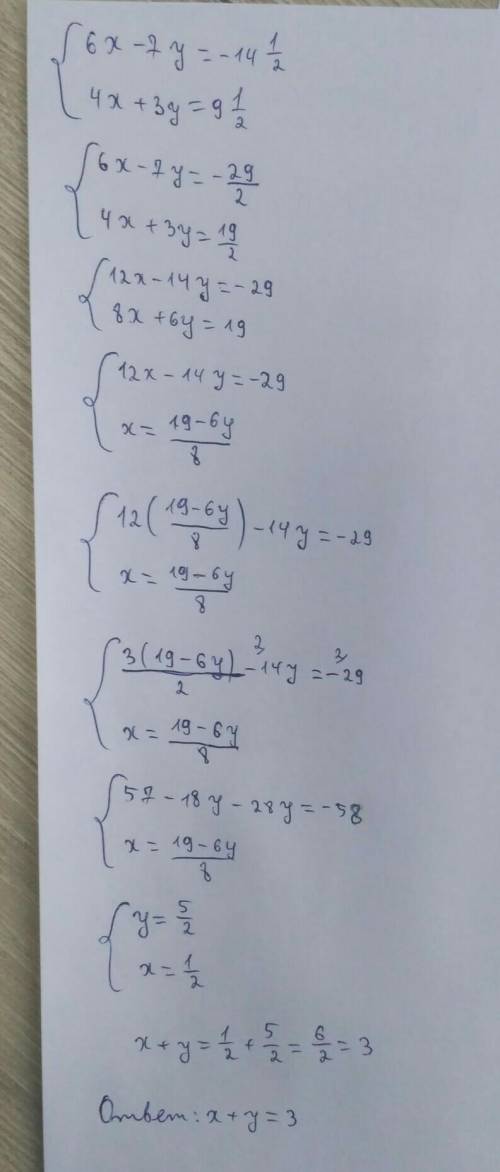 6x - 7y = -14 1/2
4x + 3y = 9 1/2
6x - 7y = -29/2
4x + 3y = 19/2
12x - 14y = -29
8x + 6y = 19
12x - 14y = -29
x = (19 - 6y)/8
12((19 - 6y)/8) - 14y = -29
x = (19 - 6y)/8
3(19 - 6y)/2 - 14y = -29
x = (19 - 6y)/8
57 - 18y - 28y = -58
x = (19 - 6y)/8
y = 5/2
x = 1/2
x + y = 1/2 + 5/2 = 6/2 = 3
Ответ: x + y = 3